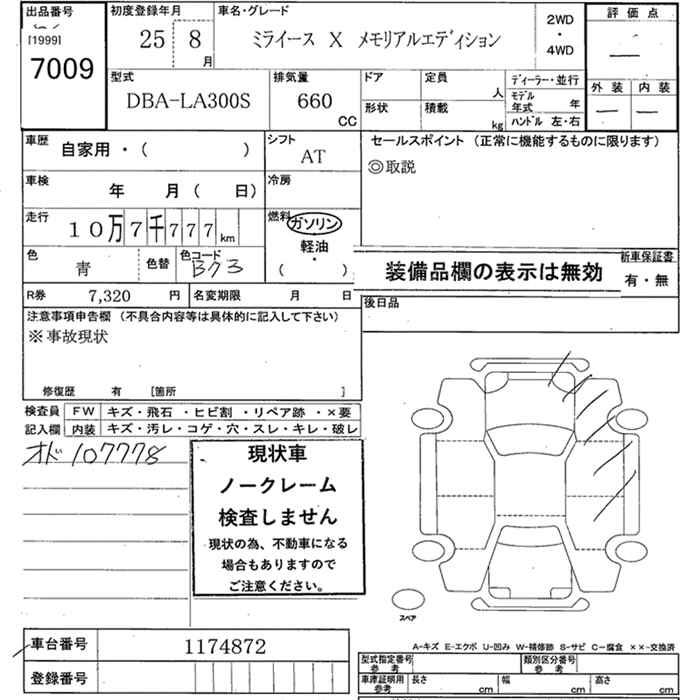 出品番号 初度登録年月 車名・グレード 2WD ・ 4WD 評価点
[1999] 25 8月 ミライース X メモリアルエディション —
7009
型式 排気量 ドア 定員 人 ディーラー・並行 外装 内装
DBA-LA300S 660 CC 形状 積載 kg モデル年式 年 — —
ハンドル 左・右
車歴 自家用・( ) シフト AT セールスポイント (正常に機能するものに限ります)
◎取説
車検 年 月 ( 日) 冷房
走行 10万7千777km 燃料 ガソリン
軽油
・
( )
色 青 色替 色コード B73 装備品欄の表示は無効 新車保証書
有・無
R券 7,320 円 名変期限 月 日 後日品
注意事項申告欄 (不具合内容等は具体的に記入して下さい)
※事故現状
修復歴 有 [箇所 ]
検査員 FW キズ・飛石・ヒビ割・リペア跡・×要
記入欄 内装 キズ・汚レ・コゲ・穴・スレ・キレ・破レ
オド107778
現状車
ノークレーム
検査しません
現状の為、不動車になる
場合もありますので
ご注意ください。
スペア
車台番号 1174872
登録番号
A-キズ E-エクボ U-凹み W-補修跡 S-サビ C-腐食 ××-交換済
型式指定番号 参考 類別区分番号 参考
車庫証明用 参考 長さ cm 幅 cm 高さ cm